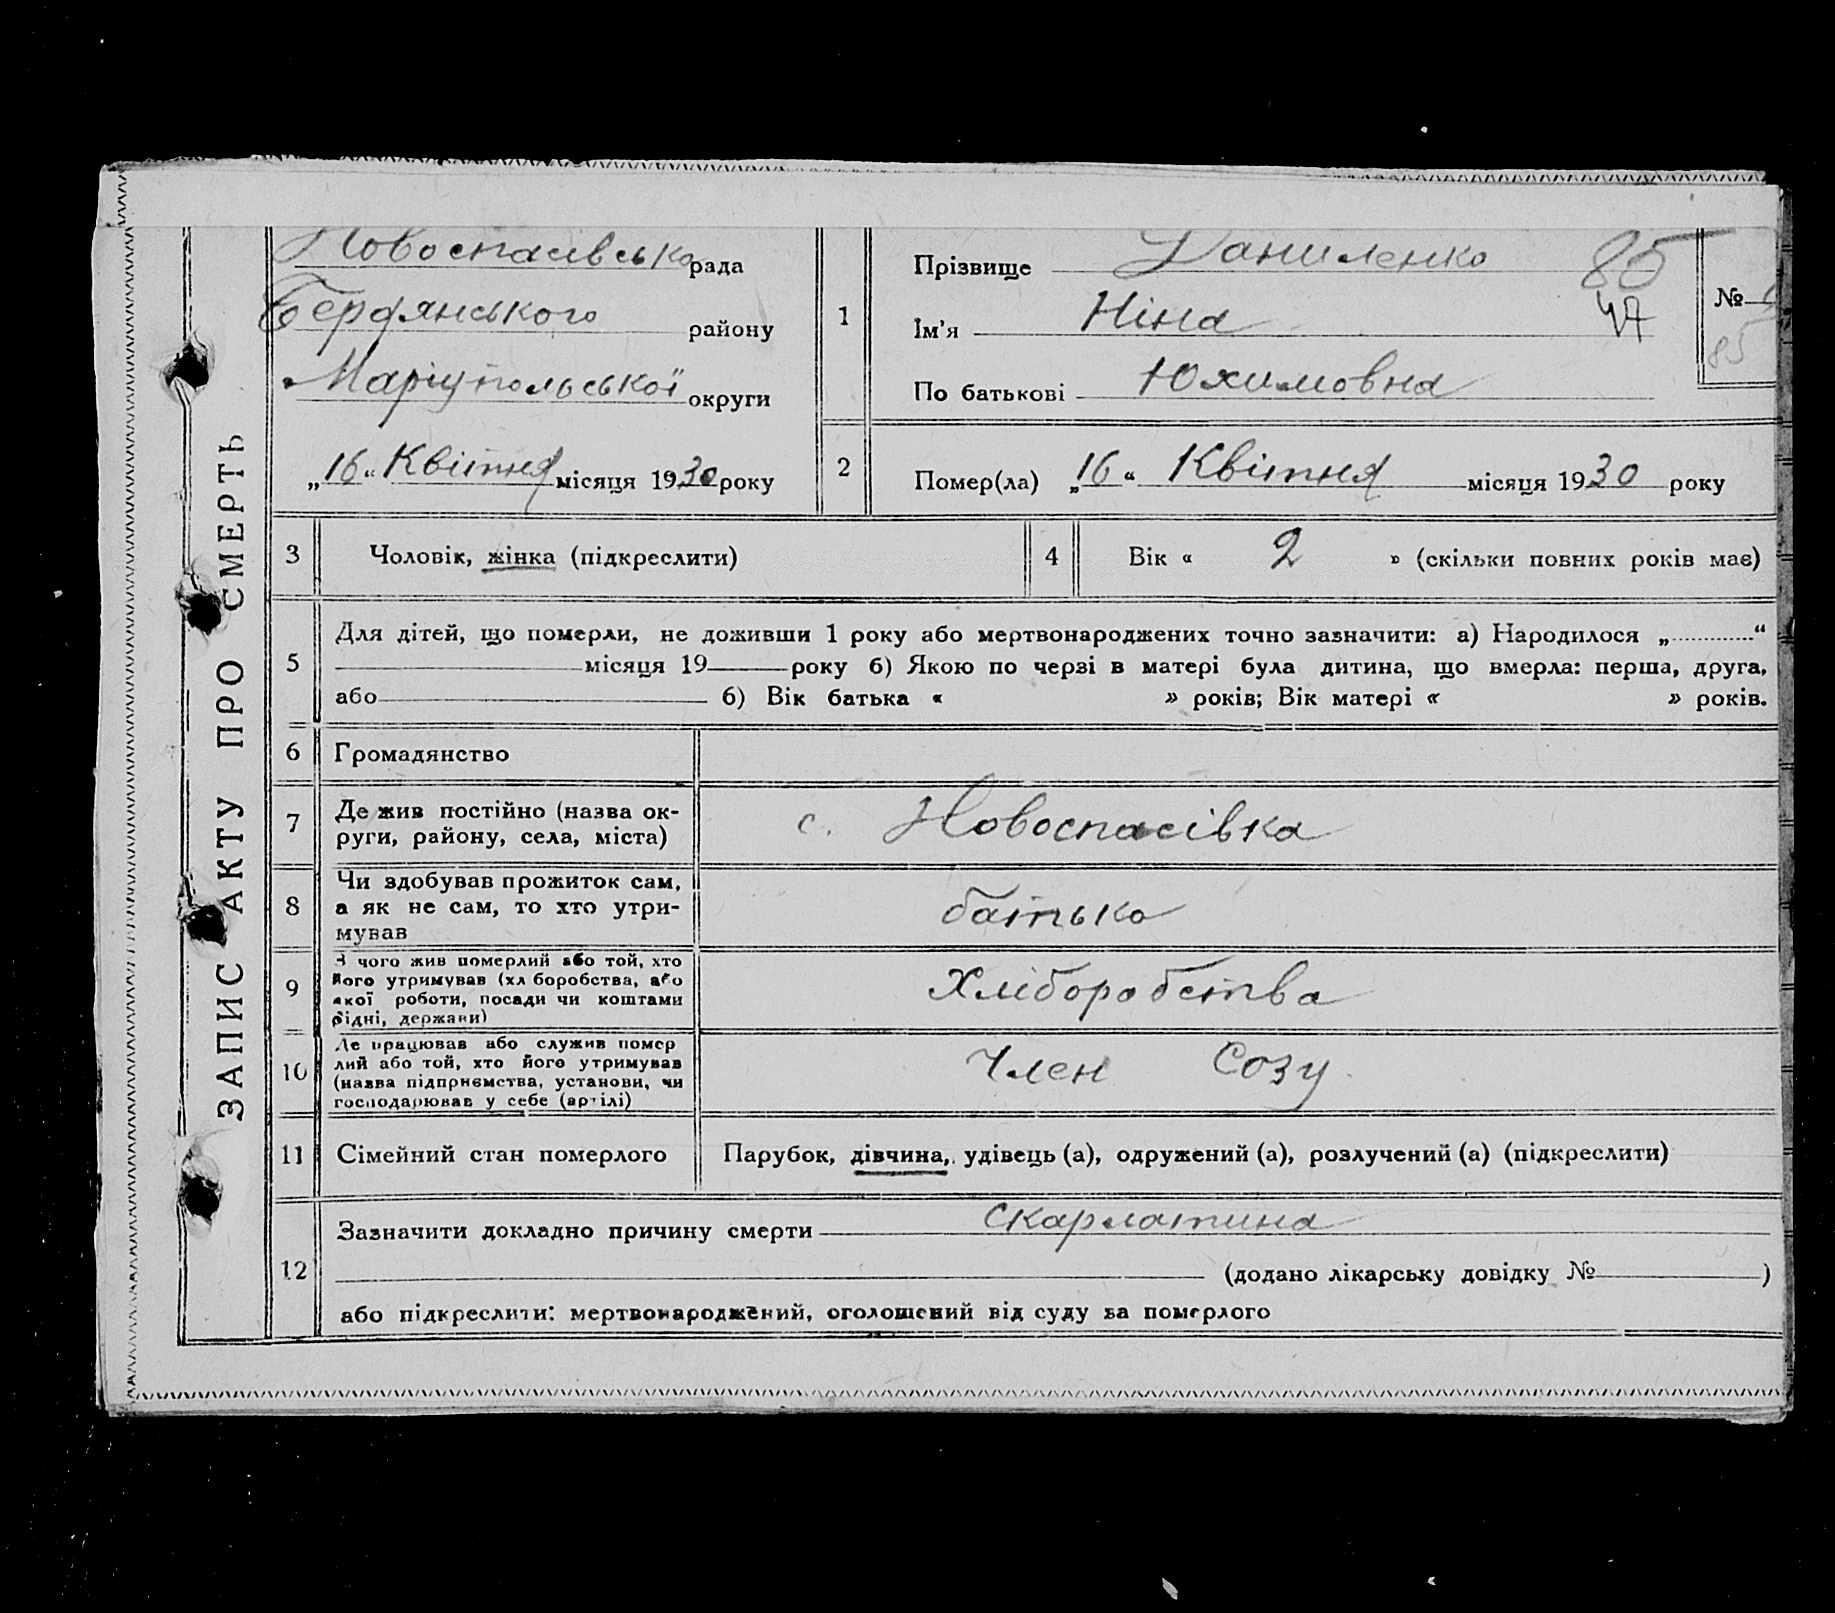 ЗАПИС АКТУ ПРО СМЕРТЬ
Новоспасівська рада
Бердянського району
Маріупольської округи
„16“ Квітня місяця 1930 року
1
Прізвище Даниленко 85
Ім'я Ніна 47
По батькові Юхимовна
№
85
2
Помер(ла) „16“ Квітня місяця 1930 року
3 Чоловік, жінка (підкреслити)
4 Вік « 2 » (скільки повних років має)
5
Для дітей, що померли, не доживши 1 року або мертвонароджених точно зазначити: а) Народилося „ “
місяця 19 року б) Якою по черзі в матері була дитина, що вмерла: перша, друга,
або б) Вік батька « » років; Вік матері « » років.
6 Громадянство
7
Де жив постійно (назва ок-
руги, району, села, міста)
с. Новоспасівка
8
Чи здобував прожиток сам,
а як не сам, то хто утри-
мував
батько
9
З чого жив померлий або той, хто
його утримував (хліборобства, або
якої роботи, посади чи коштами
рідні, держави)
Хліборобства
10
Де працював або служив помер
лий або той, хто його утримував
(назва підприємства, установи, чи
господарював у себе (артілі)
Член Созу
11 Сімейний стан померлого
Парубок, дівчина, удівець (а), одружений (а), розлучений (а) (підкреслити)
12
Зазначити докладно причину смерти Скарлатина
(додано лікарську довідку № )
або підкреслити: мертвонароджений, оголошений від суду за померлого